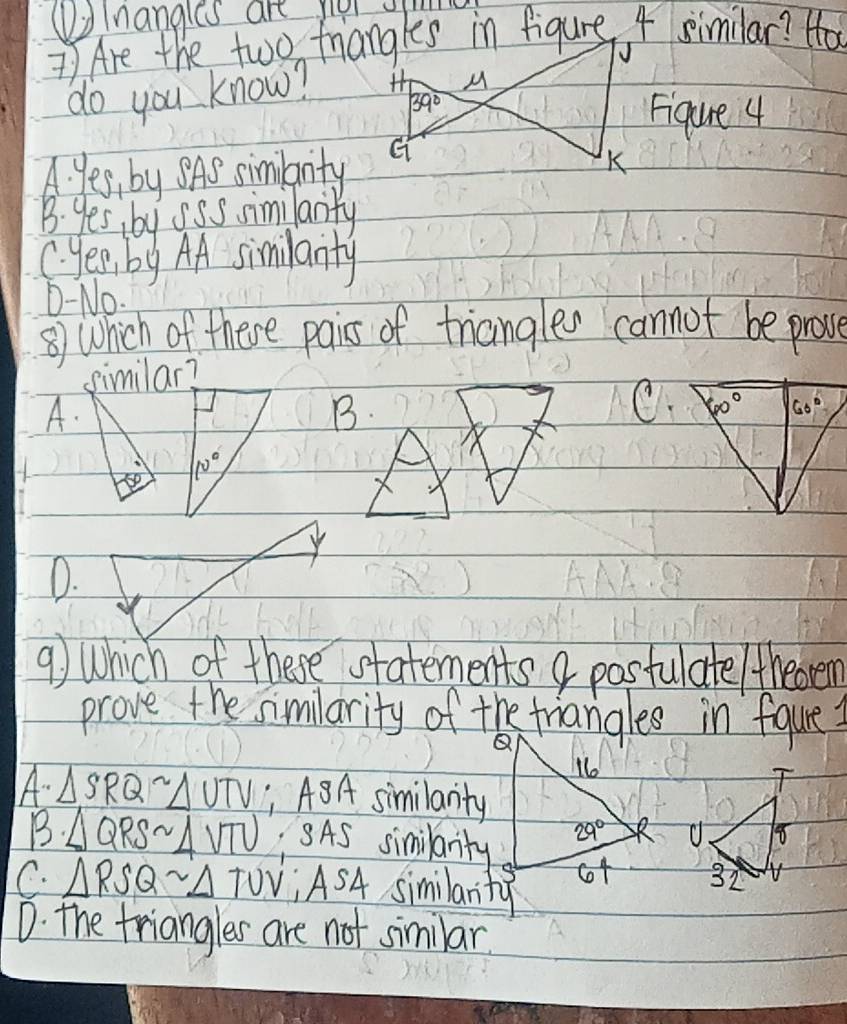 D.) Triangles are not similar
7.) Are the two triangles in figure 4 similar? How
do you know?
H M J
39°
Figure 4
G K
A. Yes, by SAS similarity
B. Yes, by SSS similarity
C. Yes, by AA similarity
D-No.
8.) Which of these pairs of triangles cannot be prove
similar?
A. B. C.
60° 60°
10°
D.
9.) Which of these statements & postulate/theorem
prove the similarity of the triangles in fqure 1
Q
16 T
A. ∆SRQ~∆UTV; ASA similarity
B. ∆QRS~∆VTU; SAS similarity
29° R U 8
S
64 32 V
C. ∆RSQ~∆TUV; ASA similarity
D. The triangles are not similar.